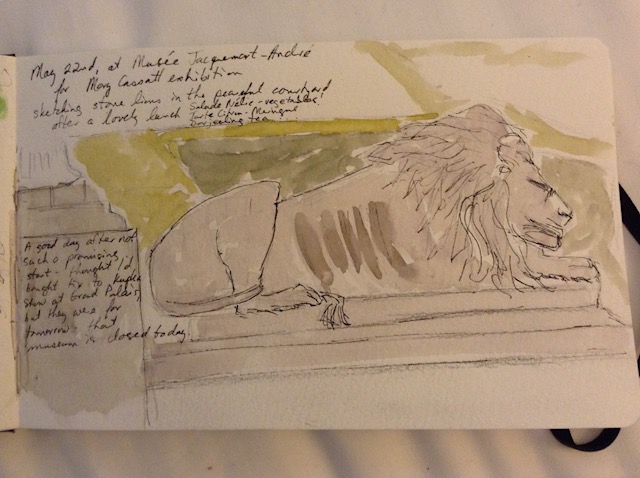 May 22nd, at Musée Jacquemart-André
for Mary Cassatt exhibition
sketching stone lions in the peaceful courtyard
after a lovely lunch Salade Nélie - vegetables,
Tarte Citron - Meringue
Darjeeling tea....
A good day after not
such a promising
start - thought I'd
bought tix to
show at Grand Palais,
but they were for
tomorrow - that
museum is closed today.